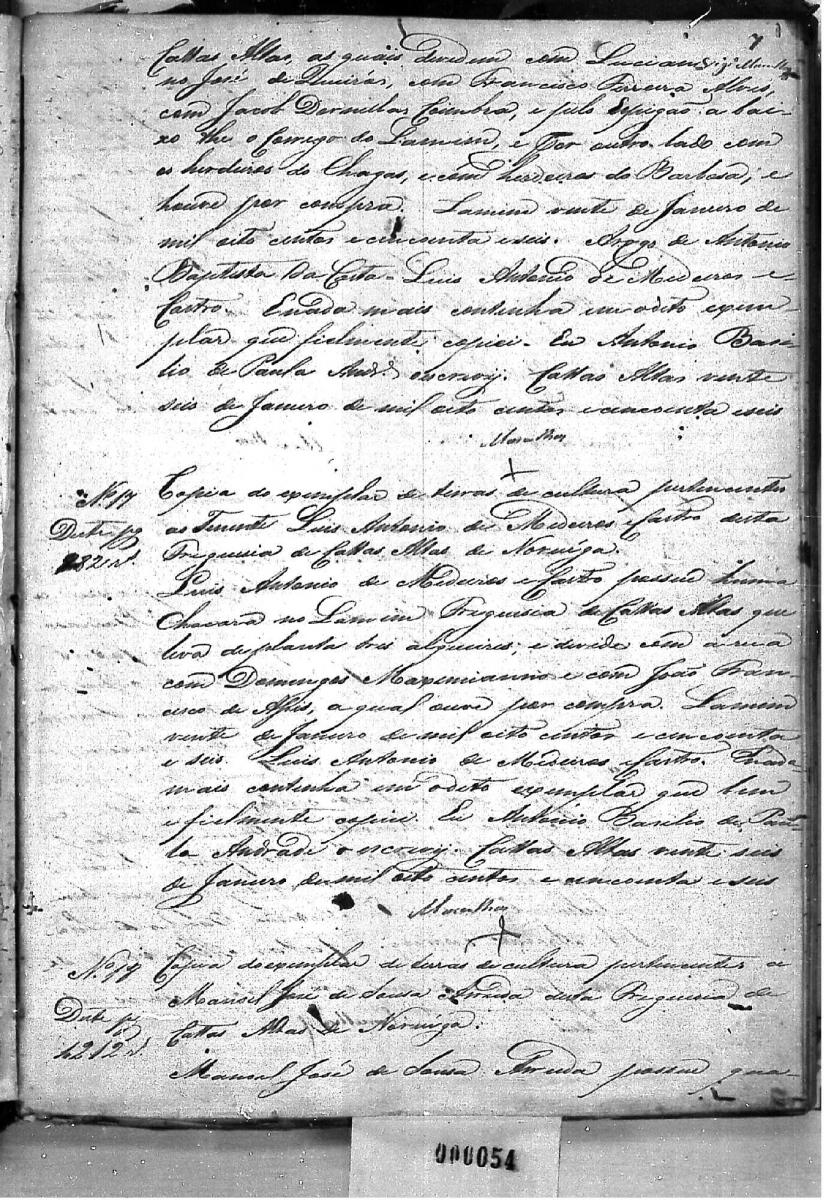 7
Cattas Altas, as quais devidem com Luciano
no José de Queirós, com Francisco Ferreira Alves,
com Jacob Dornellas Coimbra, e pelo espigão a bai-
xo the o Corrego do Lamim, e por outro lado com
os herdeiros do Chagas, e com herdeiros do Barbosa, e
houve por compra. Lamim vinte de Janeiro de
mil oito centos e cincoenta e seis. Arogo de Antonio
Baptista da Costa - Luis Antonio de Medeiros e
Castro. Enada mais continha em o dito exem-
plar que fielmente copiei. Eu Antonio Basi-
lio de Paula Andr.e o escrevy. Cattas Altas vinte
seis de Janeiro de mil oito centos e cincoenta e seis
N.o 17
Copia do exemplar de terras de cultura pertencentes
ao Tenente Luis Antonio de Medeiros e Castro desta
Freguesia de Cattas Altas de Noruega.
Luis Antonio de Medeiros e Castro possue huma
Chacara no Lamim Freguesia de Cattas Altas que
leva de planta tres alqueires, e devide com a rua
com Domingos Maximianno e com João Fran-
cisco de Assis, a qual ouve por compra. Lamim
vinte de Janeiro de mil oito centos e cincoenta
e seis. Luis Antonio de Medeiros e Castro. Enada
mais continha em o dito exemplar que bem
e fielmente copiei. Eu Antonio Basilio de Pau-
la Andrade o escrevy. Cattas Altas vinte seis
de Janeiro de mil oito centos e cincoenta e seis
Copia do exemplar de terras de cultura pertencentes a
Manoel José de Sousa Arruda desta Freguesia de
Cattas Altas de Noruega.
Manoel José de Sousa Arruda possue qua-
000054